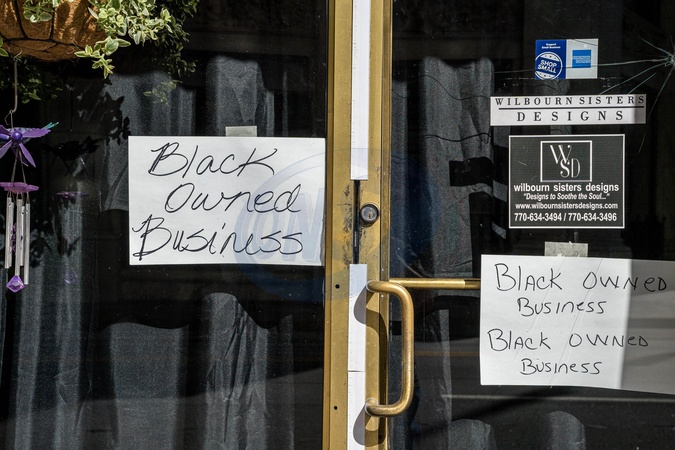 Black
Owned
Business
Support
Small Business
SHOP
SMALL
WILBOURN SISTERS
DESIGNS
WSD
wilbourn sisters designs
"Designs to Soothe the Soul..."
www.wilbournsistersdesigns.com
770-634-3494 / 770-634-3496
BLACK OWNED
BUSINESS
BLACK OWNED
BUSINESS